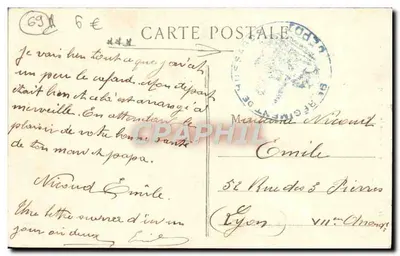 69
6 €
CARTE POSTALE
Je vais bien tout ce que j'ai c'est
un peu le cafard. Mon départ
était bien et cela est arrangé à
merveille. En attendant le
plaisir de votre bonne santé
de ton mari et papa.
Nicoud Émile.
Une lettre suivra d'ici un
jour ou deux. Emile
DÉPÔT
8e RÉGIMENT DE HUSSARDS
Madame Nicoud
Emile
52 Rue des 3 Pierres
Lyon VIIme
DELCAMPE